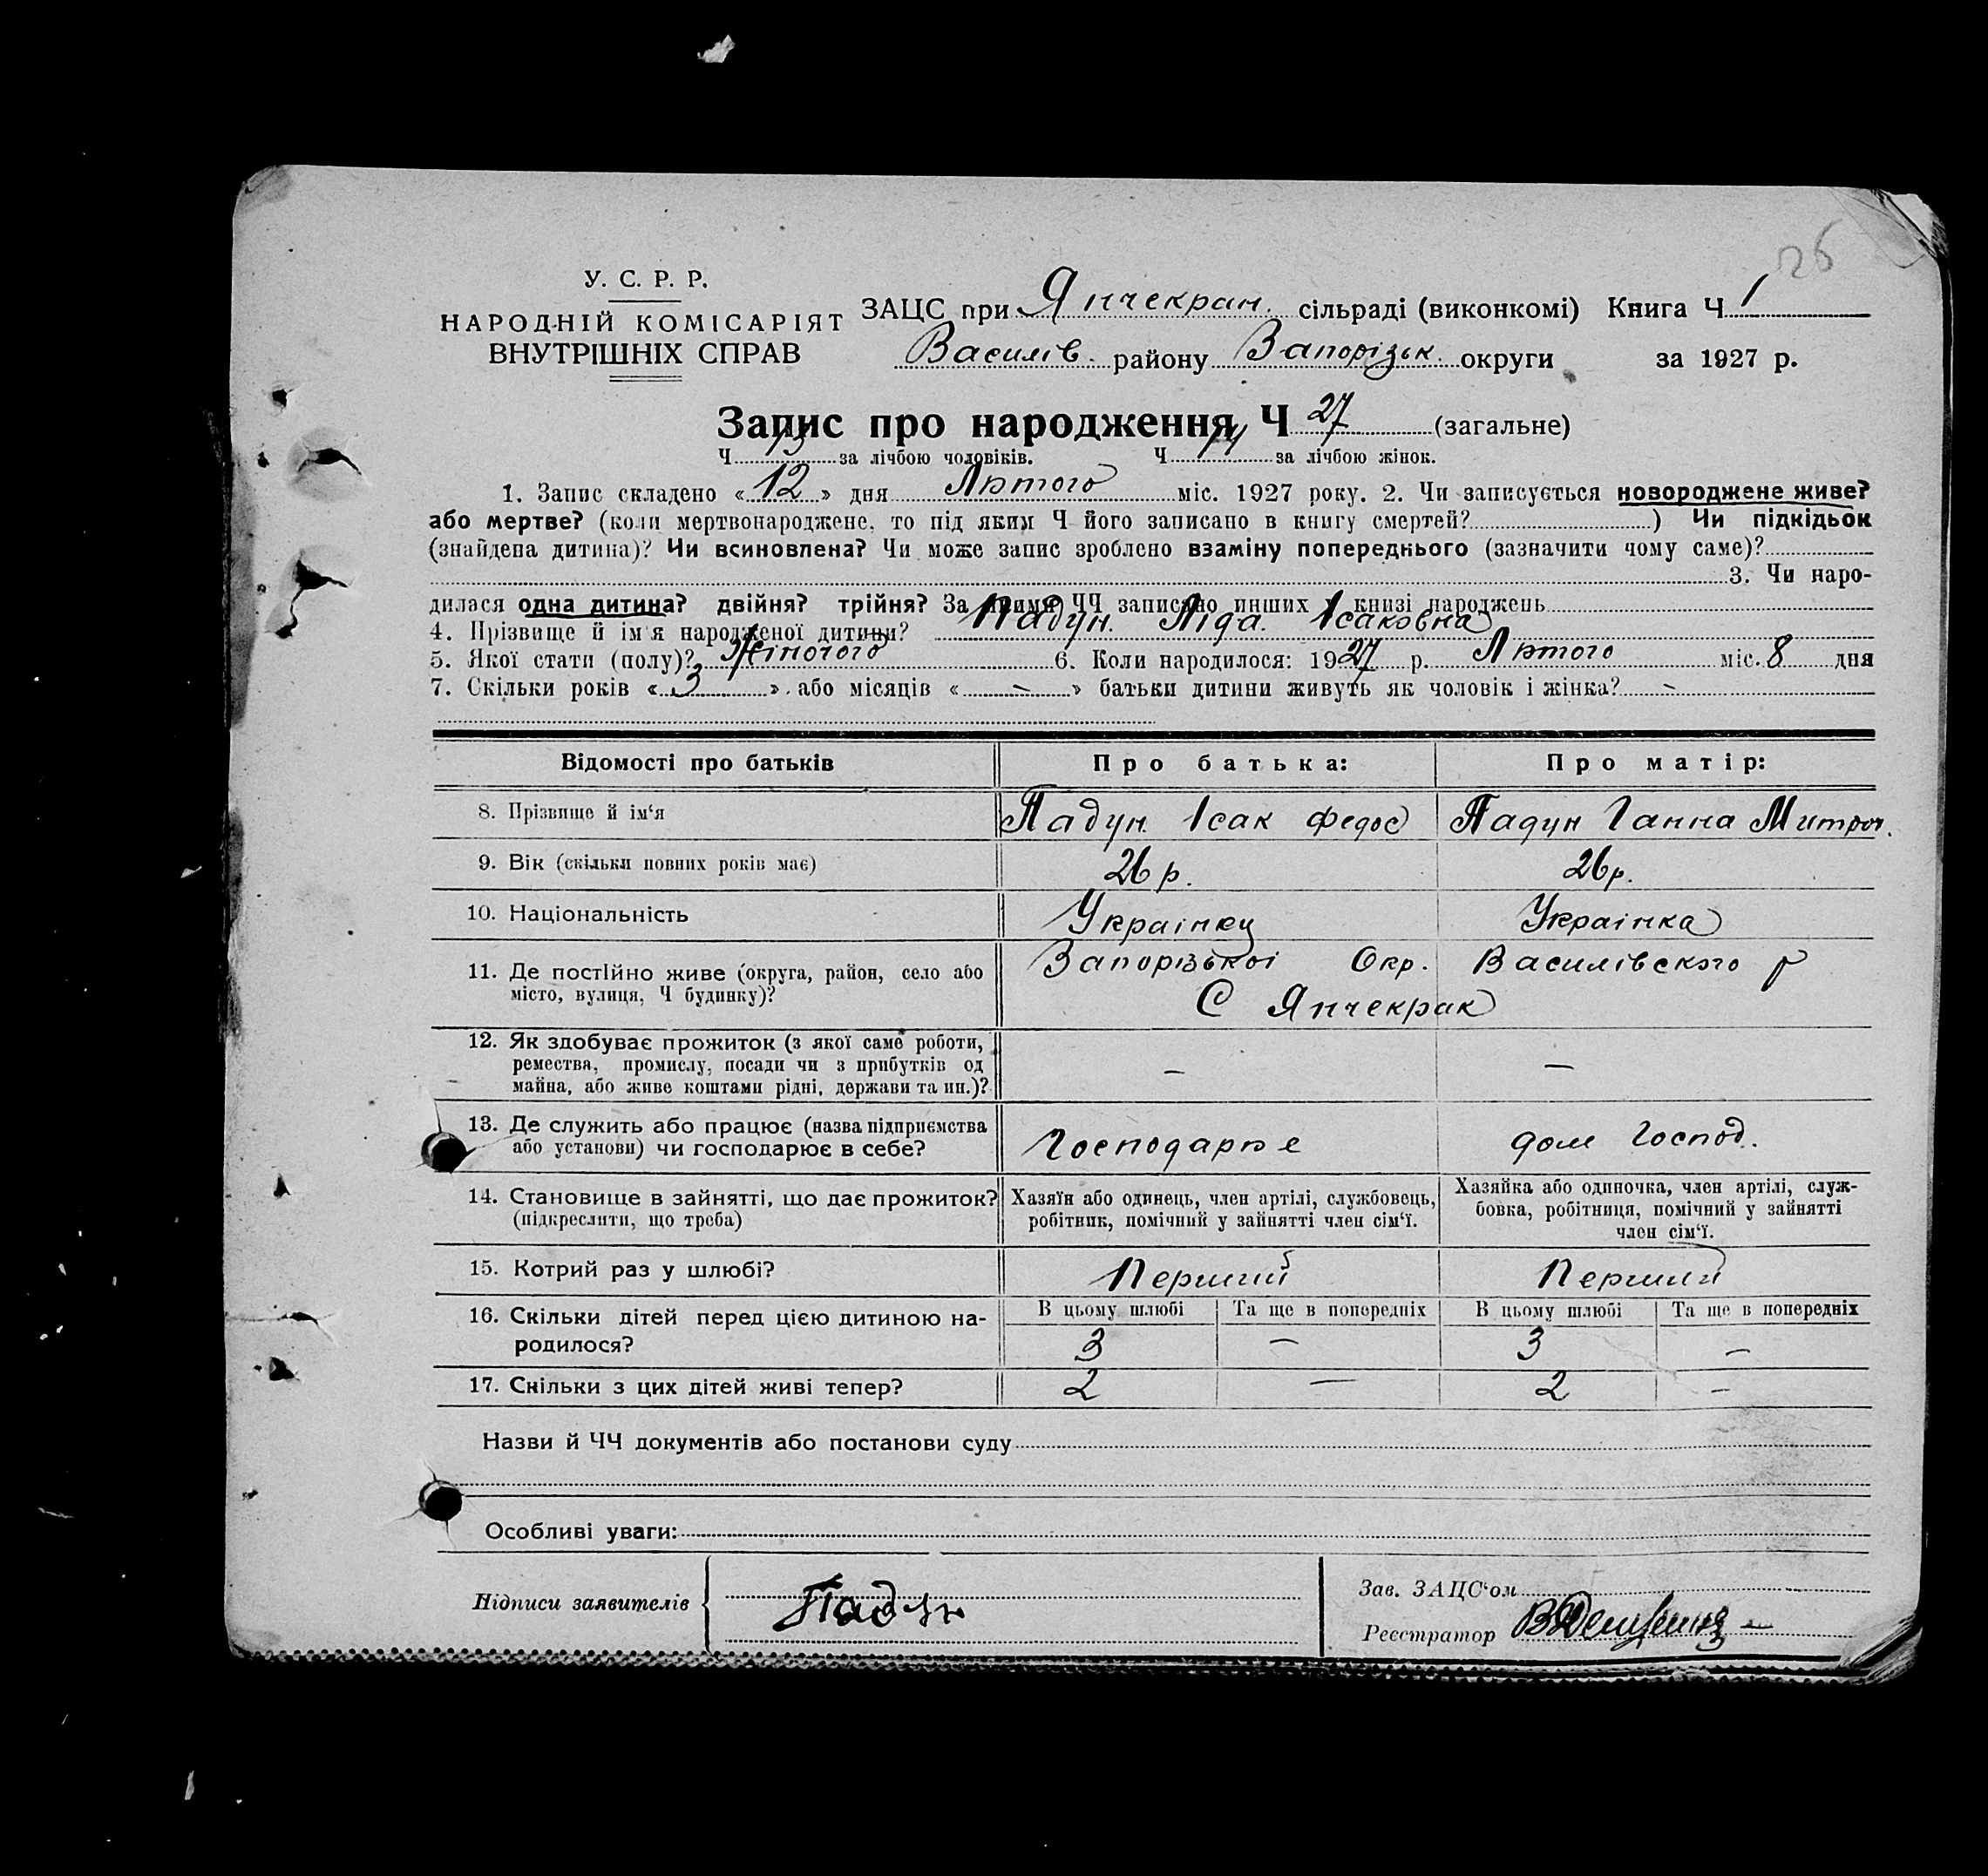 26
У. С. Р. Р.
НАРОДНІЙ КОМІСАРІЯТ
ВНУТРІШНІХ СПРАВ
ЗАЦС при Янчекрак. сільраді (виконкомі) Книга Ч 1
Василів. району Запорізьк. округи за 1927 р.
Запис про народження Ч 27 (загальне)
Ч 13 за лічбою чоловіків. Ч 14 за лічбою жінок.
1. Запис складено « 12 » дня Лютого міс. 1927 року. 2. Чи записується новороджене живе?
або мертве? (коли мертвонароджене, то під яким Ч його записано в книгу смертей? ) Чи підкідьок
(знайдена дитина)? Чи всиновлена? Чи може запис зроблено взаміну попереднього (зазначити чому саме)?
3. Чи наро-
дилася одна дитина? двійня? трійня? За якими ЧЧ записано инших у книзі народжень
4. Прізвище й ім'я народженої дитини? Падун. Ліда. Ісаковна
5. Якої стати (полу)? Жіночого 6. Коли народилося: 1927 р. Лютого міс. 8 дня
7. Скільки років « 3 » або місяців « – » батьки дитини живуть як чоловік і жінка? –
Відомості про батьків Про батька: Про матір:
8. Прізвище й ім‘я Падун. Ісак Федос Падун Ганна Митроф.
9. Вік (скільки повних років має) 26 р. 26 р.
10. Національність Українец Українка
11. Де постійно живе (округа, район, село або Запорізької Окр. Василівского р
місто, вулиця, Ч будинку)? С Янчекрак
12. Як здобуває прожиток (з якої саме роботи,
ремества, промислу, посади чи з прибутків од – –
майна, або живе коштами рідні, держави та ин.)?
13. Де служить або працює (назва підприємства
або установи) чи господарює в себе? Господарює дом Господ.
14. Становище в зайнятті, що дає прожиток? Хазяїн або одинець, член артілі, службовець, Хазяйка або одиночка, член артілі, служ-
(підкреслити, що треба) робітник, помічний у зайнятті член сім‘ї. бовка, робітниця, помічний у зайнятті
член сім‘ї.
15. Котрий раз у шлюбі? Перший Перший
16. Скільки дітей перед цією дитиною на- В цьому шлюбі Та ще в попередніх В цьому шлюбі Та ще в попередніх
родилося? 3 – 3 –
17. Скільки з цих дітей живі тепер? 2 – 2 –
Назви й ЧЧ документів або постанови суду
Особливі уваги:
Підписи заявителів Падун
Зав. ЗАЦС‘ом
Реєстратор